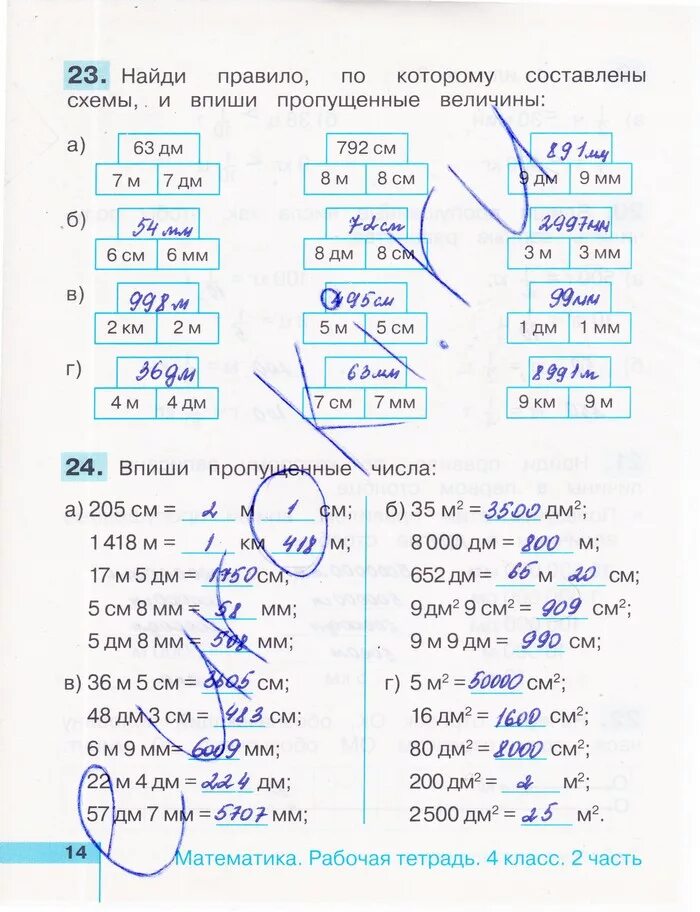 23. Найди правило, по которому составлены
схемы, и впиши пропущенные величины:
а) 63 дм 792 см 891 мм
7 м 7 дм 8 м 8 см 9 дм 9 мм
б) 54 мм 72 см 2997 мм
6 см 6 мм 8 дм 8 см 3 м 3 мм
в) 998 м 495 см 99 мм
2 км 2 м 5 м 5 см 1 дм 1 мм
г) 36 дм 63 мм 8991 м
4 м 4 дм 7 см 7 мм 9 км 9 м
24. Впиши пропущенные числа:
а) 205 см = 2 м 1 см; б) 35 м² = 3500 дм²;
1 418 м = 1 км 418 м; 8 000 дм = 800 м;
17 м 5 дм = 1750 см; 652 дм = 65 м 20 см;
5 см 8 мм = 58 мм; 9 дм² 9 см² = 909 см²;
5 дм 8 мм = 508 мм; 9 м 9 дм = 990 см;
в) 36 м 5 см = 3605 см; г) 5 м² = 50000 см²;
48 дм 3 см = 483 см; 16 дм² = 1600 см²;
6 м 9 мм = 6009 мм; 80 дм² = 8000 см²;
22 м 4 дм = 224 дм; 200 дм² = 2 м²;
57 дм 7 мм = 5707 мм; 2 500 дм² = 25 м².
14 Математика. Рабочая тетрадь. 4 класс. 2 часть